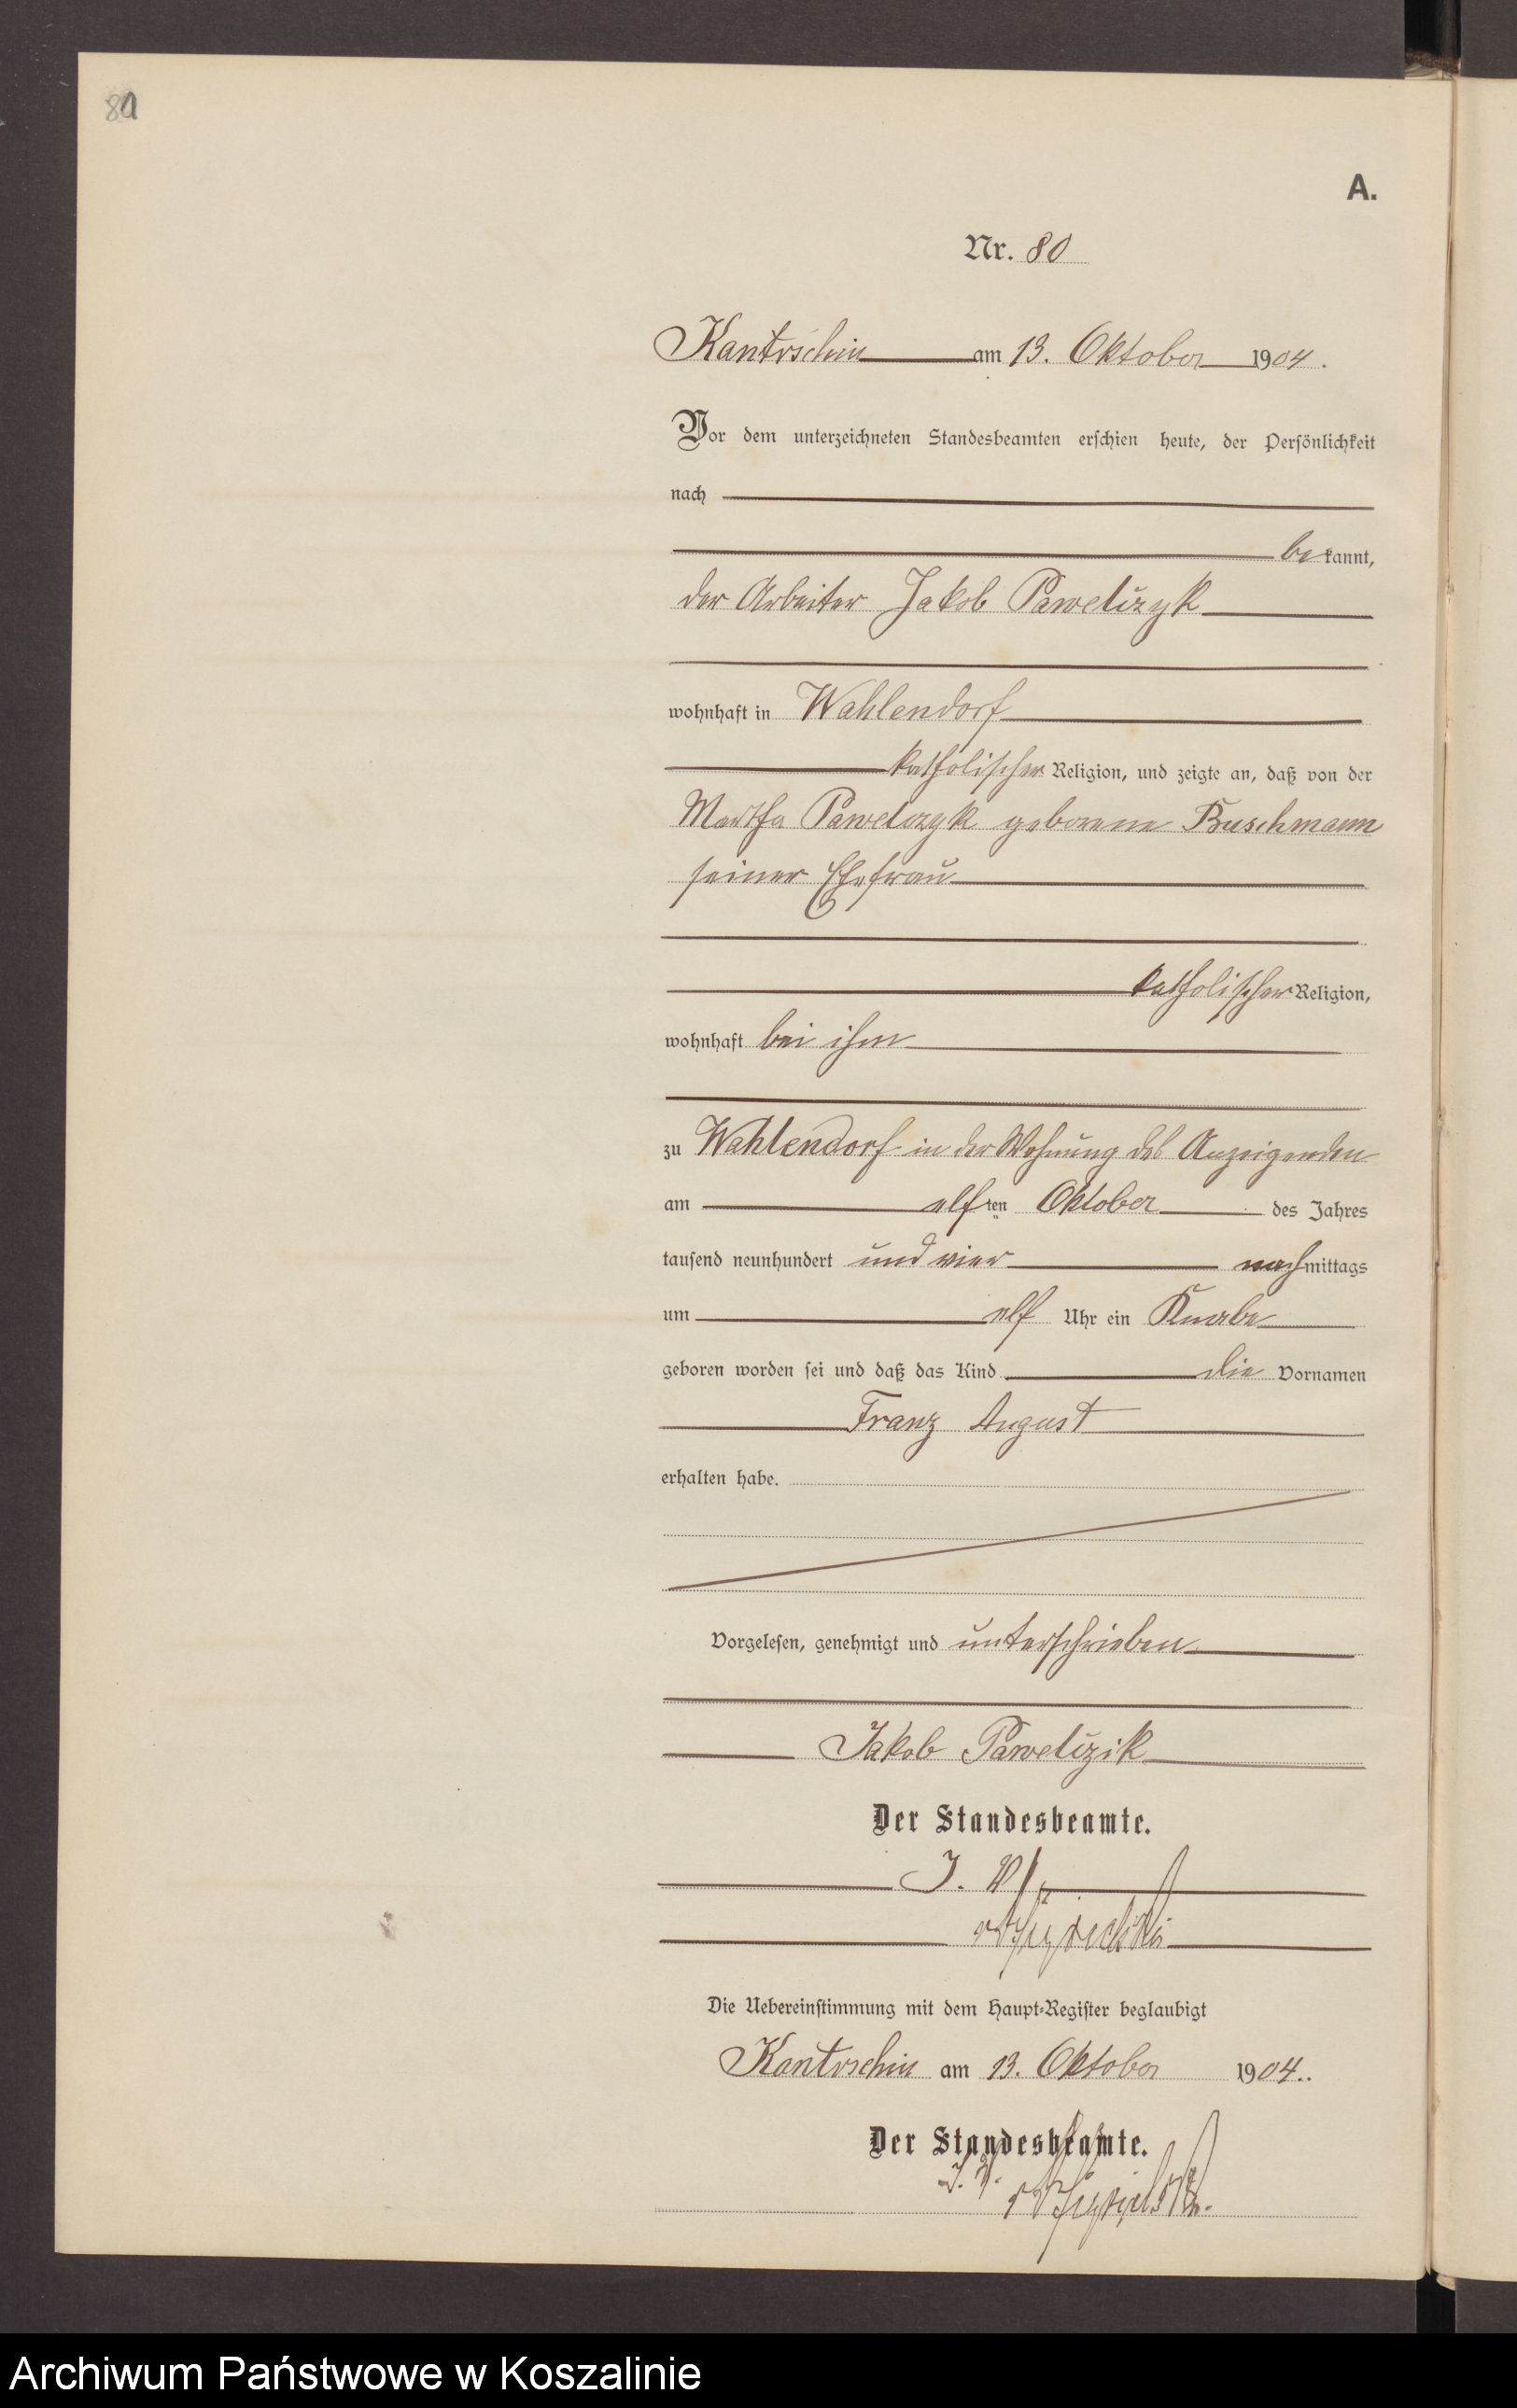 80
A.
Nr. 80
Kantrschin am 13. Oktober 1904.
Vor dem unterzeichneten Standesbeamten erschien heute, der Persönlichkeit
nach
bekannt,
der Arbeiter Jakob Pawelczyk
wohnhaft in Wahlendorf
katholischer Religion, und zeigte an, daß von der
Martha Pawelczyk geborene Buschmann
seiner Ehefrau
katholischer Religion,
wohnhaft bei ihm
zu Wahlendorf in der Wohnung des Anzeigenden
am elften Oktober des Jahres
tausend neunhundert und vier nachmittags
um elf Uhr ein Knabe
geboren worden sei und daß das Kind die Vornamen
Franz August
erhalten habe.
Vorgelesen, genehmigt und unterschrieben
Jakob Pawelczik
Der Standesbeamte.
J. V.
Die Uebereinstimmung mit dem Haupt-Register beglaubigt
Kantrschin am 13. Oktober 1904.
Der Standesbeamte.
J. V.
Archiwum Państwowe w Koszalinie